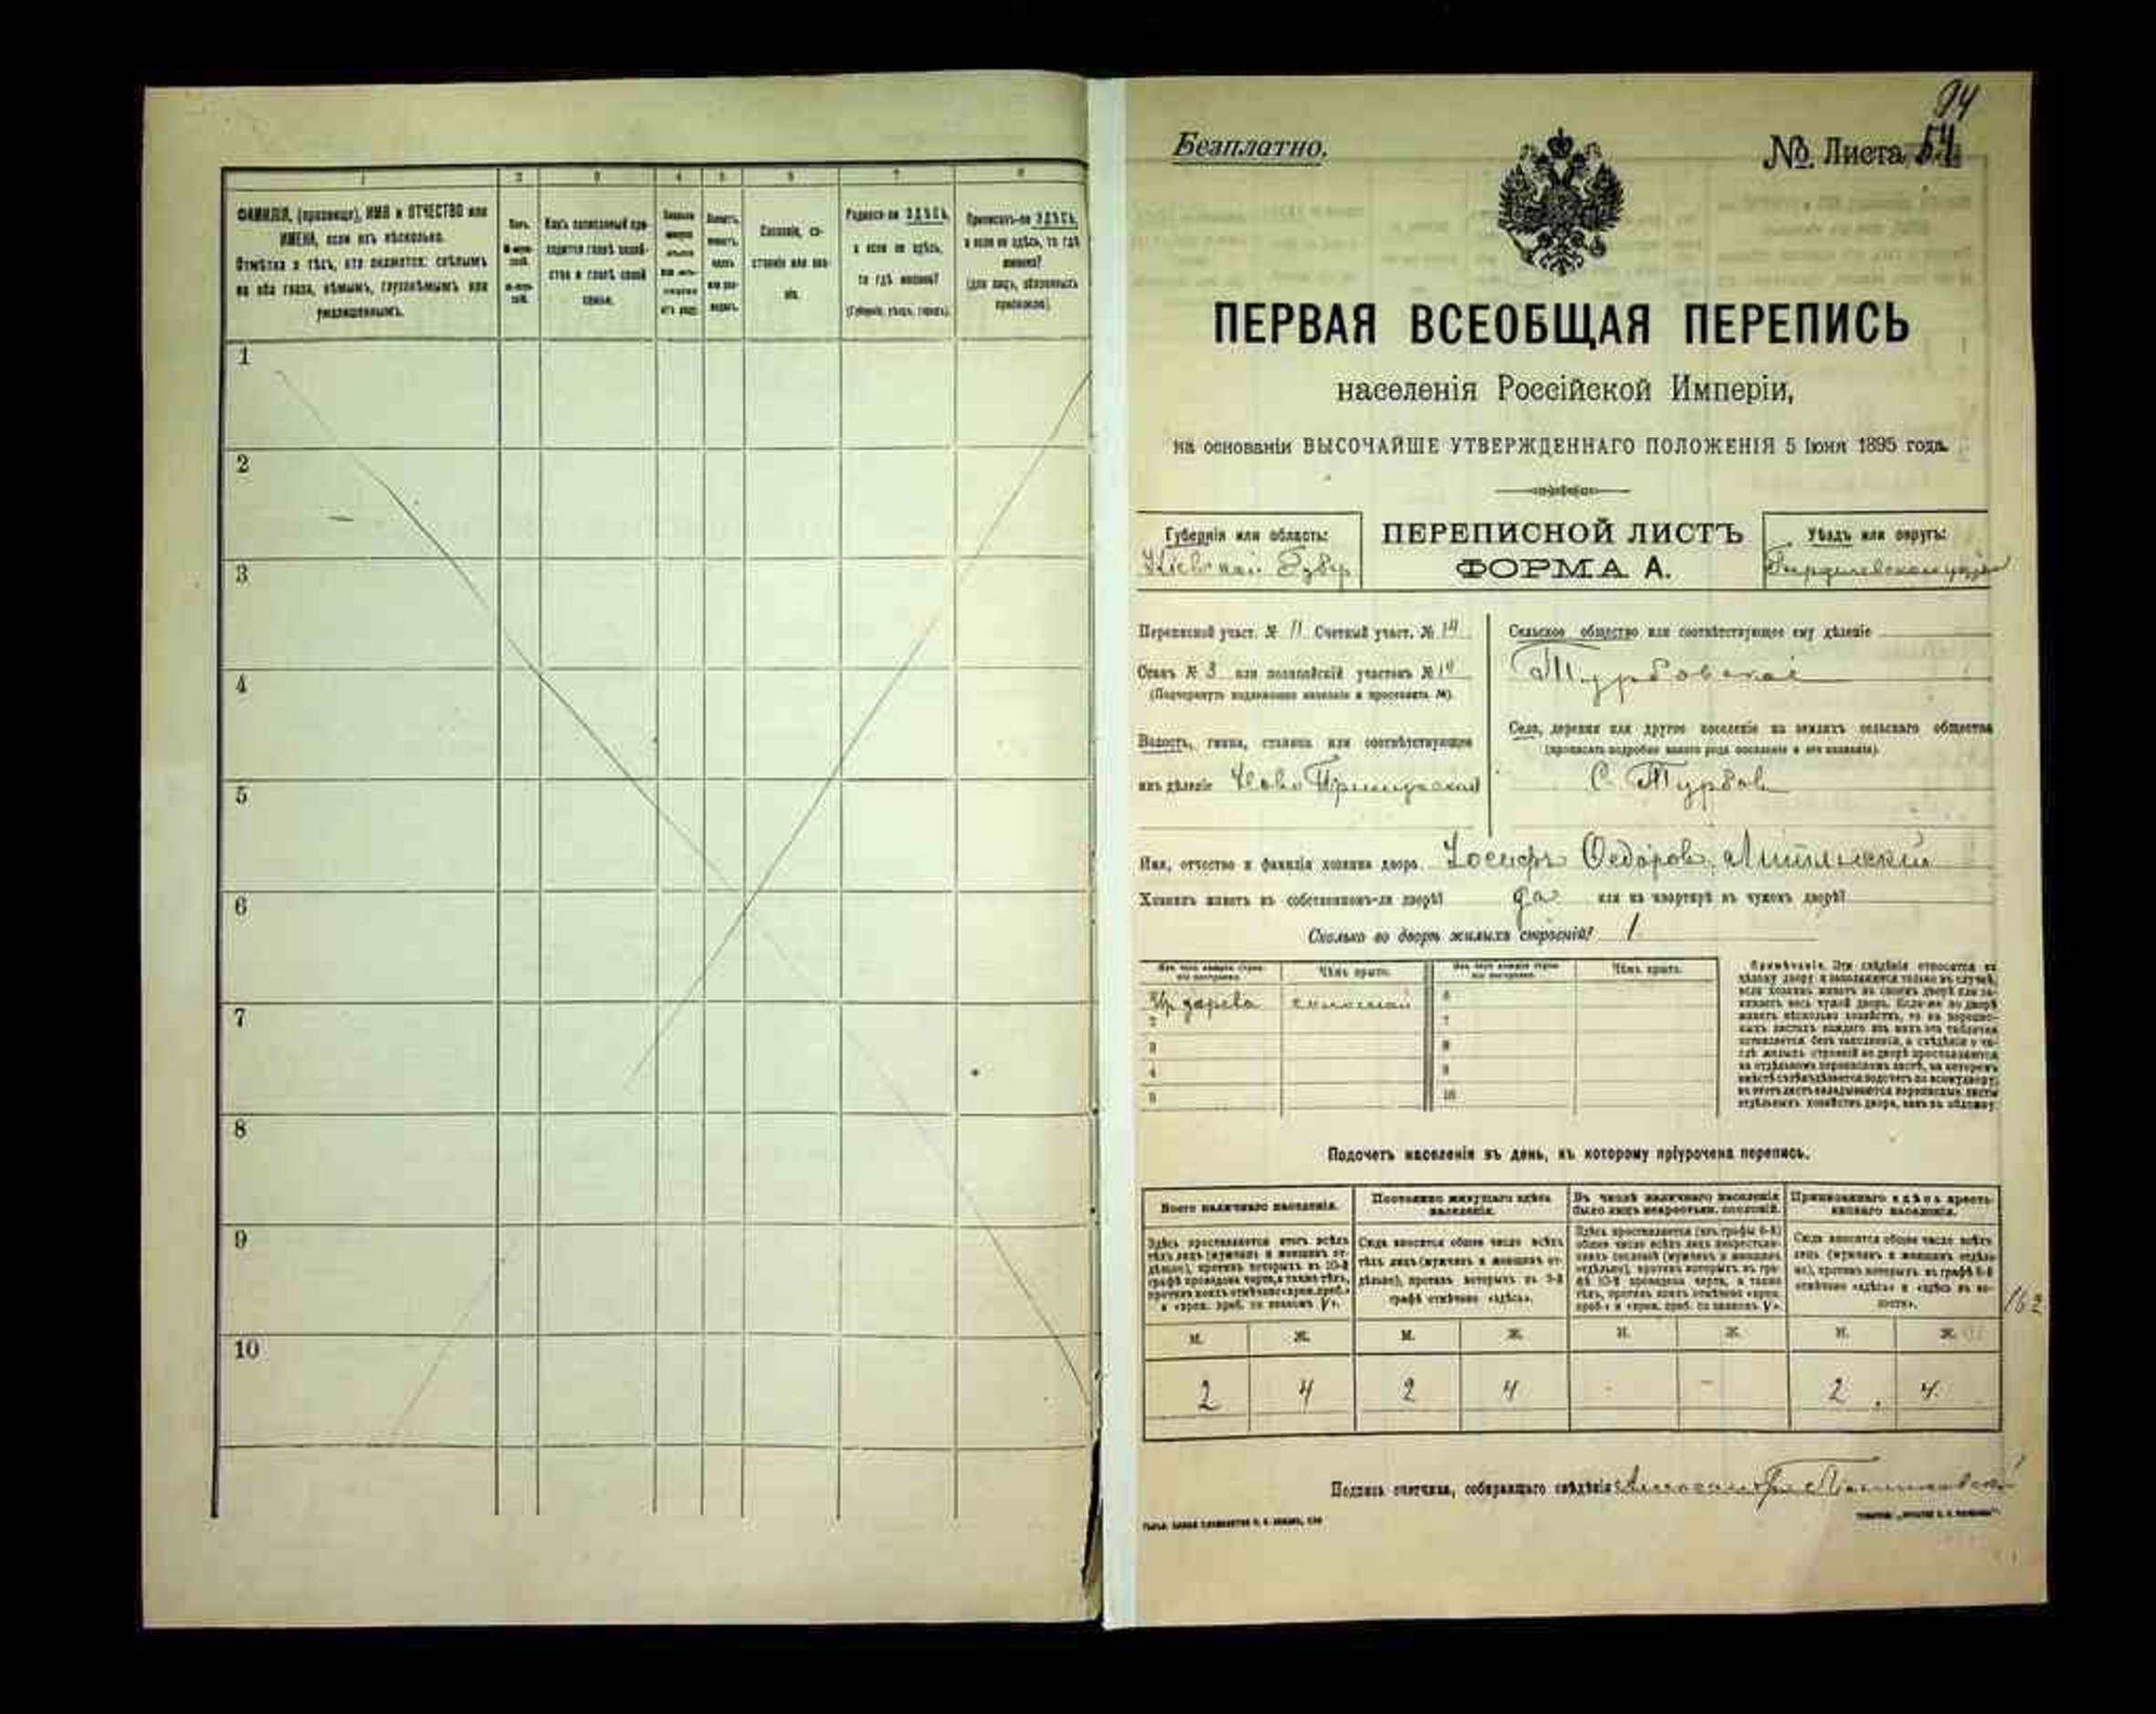 1 2 3 4 5 6 7 8
ФАМИЛІЯ, (прозвище), ИМЯ и ОТЧЕСТВО или
ИМЕНА, если ихъ нѣсколько.
Отмѣтка о тѣхъ, кто окажется: слѣпымъ
на оба глаза, нѣмымъ, глухонѣмымъ или
умалишеннымъ.
Полъ.
Какъ записанный при-
ходится главѣ хозяй-
ства и главѣ своей
семьи.
Сословіе, со-
стояніе или зва-
ніе.
Родился-ли ЗДѢСЬ,
а если не здѣсь,
то гдѣ именно?
(Губернія, уѣздъ, городъ).
Приписанъ-ли ЗДѢСЬ,
а если не здѣсь, то гдѣ
именно?
(для лицъ, обязанныхъ
припискою).
1
2
3
4
5
6
7
8
9
10
94
Безплатно.
№ Листа 54
ПЕРВАЯ ВСЕОБЩАЯ ПЕРЕПИСЬ
населенія Россійской Имперіи,
на основаніи ВЫСОЧАЙШЕ УТВЕРЖДЕННАГО ПОЛОЖЕНІЯ 5 Іюня 1895 года.
Губернія или область:
Кіевской Губер
ПЕРЕПИСНОЙ ЛИСТЪ
ФОРМА А.
Уѣздъ или округъ:
Переписной участ. № 11 Счетный участ. № 14
Станъ № 3 или полицейскій участокъ № 14
(Подчеркнуть надлежащее названіе и проставить №).
Волость, гмина, станица или соотвѣтствующее
имъ дѣленіе
Сельское общество или соотвѣтствующее ему дѣленіе
Турбовское
Село, деревня или другое поселеніе на земляхъ сельскаго общества
(прописать подробно какого рода поселеніе и его названіе).
С. Турбов
Имя, отчество и фамилія хозяина двора. Іосифъ Федоров
Хозяинъ живетъ въ собственномъ-ли дворѣ? да или на квартирѣ въ чужомъ дворѣ?
Сколько во дворѣ жилыхъ строеній? 1
Чѣмъ крыто. Чѣмъ крыто.
дерева соломой 6
2 7
3 8
4 9
5 10
Примѣчаніе. Эти свѣдѣнія относятся къ
цѣлому двору и заполняются только въ случаѣ,
если хозяинъ живетъ въ своемъ дворѣ или за-
нимаетъ весь чужой дворъ. Если-же во дворѣ
живетъ нѣсколько хозяйствъ, то на перепис-
ныхъ листахъ каждаго изъ нихъ эта табличка
оставляется безъ заполненія, а свѣдѣнія о чи-
слѣ жилыхъ строеній во дворѣ проставляются
на отдѣльномъ переписномъ листѣ, на которомъ
Подсчетъ населенія въ день, къ которому пріурочена перепись.
Всего наличнаго населенія.
Здѣсь проставляется итогъ всѣхъ
тѣхъ лицъ (мужчинъ и женщинъ от-
дѣльно), противъ которыхъ въ 10-й
графѣ проведена черта, а также тѣхъ,
противъ коихъ отмѣчено «врем. преб.»
и «врем. преб. со знакомъ V».
Постоянно живущаго здѣсь
населенія.
Сюда вносится общее число всѣхъ
тѣхъ лицъ (мужчинъ и женщинъ от-
дѣльно), противъ которыхъ въ 9-й
графѣ отмѣчено «здѣсь».
Въ числѣ наличнаго населенія
было лицъ некрестьян. сословій.
Здѣсь проставляется (изъ графы 6-й)
общее число всѣхъ лицъ некрестьян-
скихъ сословій (мужчинъ и женщинъ
отдѣльно), противъ которыхъ въ гра-
фѣ 10-й проведена черта, а также
тѣхъ, противъ коихъ отмѣчено «врем.
преб.» и «врем. преб. со знакомъ V».
Приписаннаго здѣсь кресть-
янскаго населенія.
Сюда вносится общее число всѣхъ
лицъ (мужчинъ и женщинъ отдѣль-
но), противъ которыхъ въ графѣ 8-й
отмѣчено «здѣсь» и «здѣсь въ во-
лости».
162
М. Ж. М. Ж. М. Ж. М. Ж.
2 4 2 4 - - 2 4
Подпись счетчика, собиравшаго свѣдѣнія: